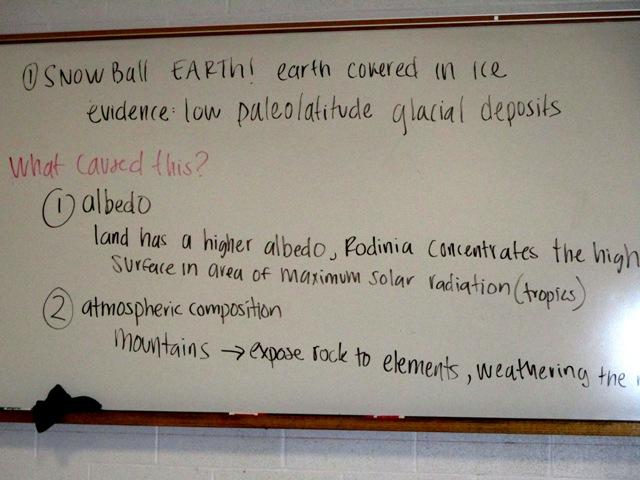 ① SNOW Ball EARTH! earth covered in ice
evidence: low paleolatitude glacial deposits
What caused this?
① albedo
land has a higher albedo, Rodinia concentrates the high
surface in area of maximum solar radiation (tropics)
② atmospheric composition
mountains → expose rock to elements, weathering the